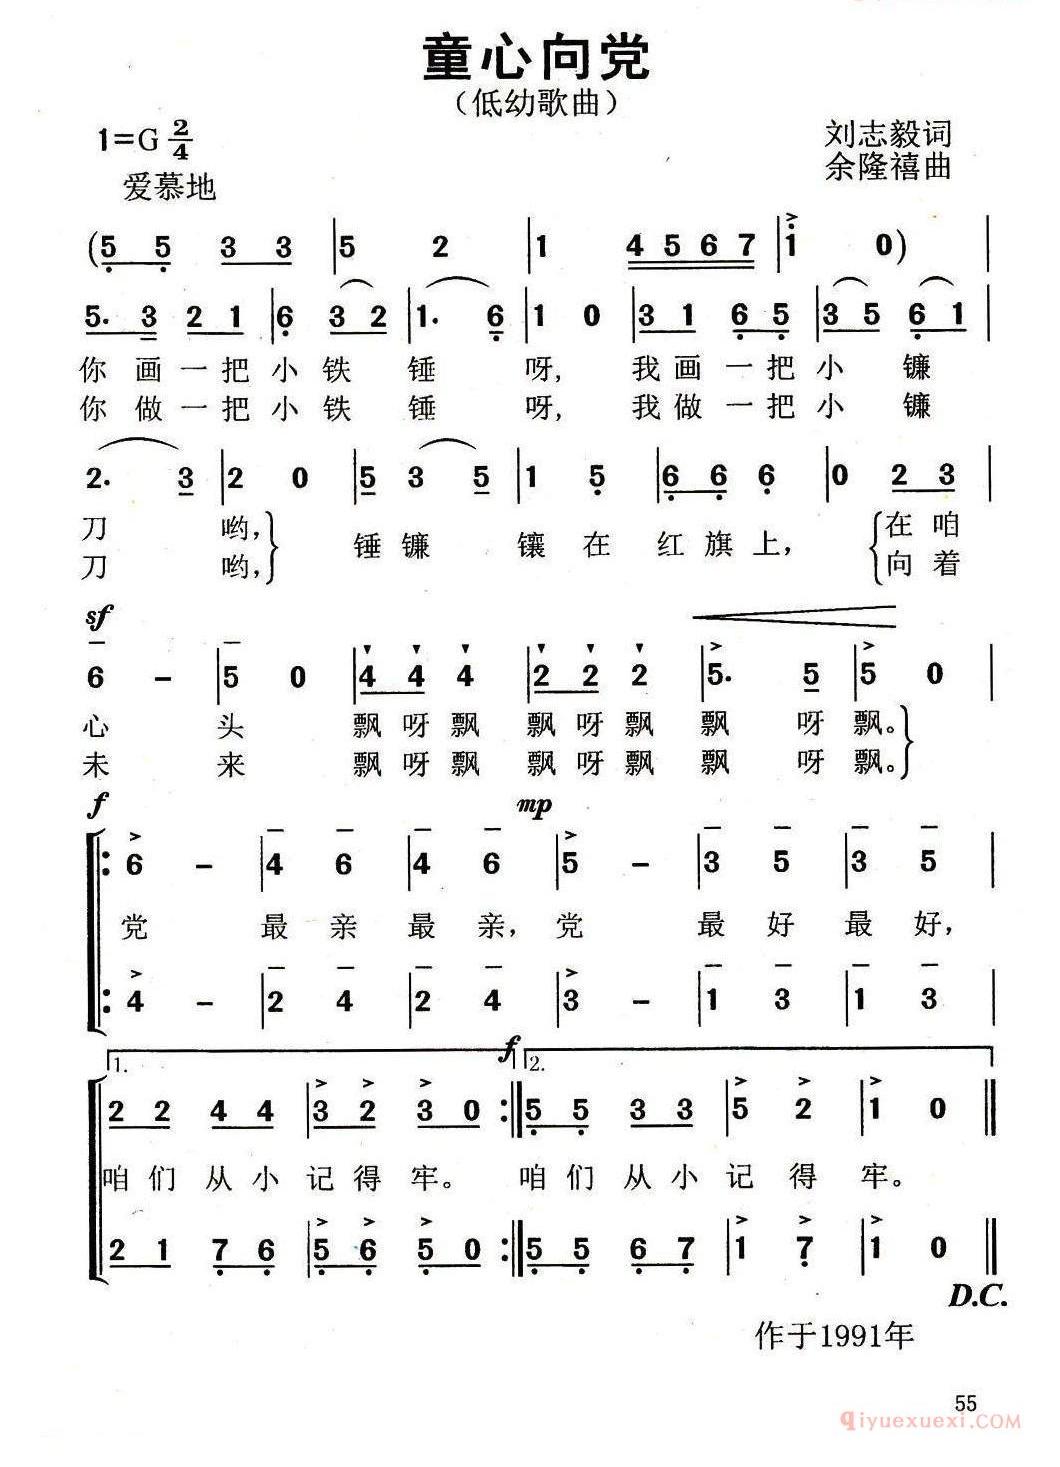 童心向党
（低幼歌曲）
1=G 2/4
刘志毅词
爱慕地
余隆禧曲
(5 5 3 3 | 5 2 | 1 4 5 6 7 | 1 0) |
5. 3 2 1 | 6 3 2 | 1. 6 | 1 0 | 3 1 6 5 | 3 5 6 1 |
你画一把小铁锤呀,我画一把小镰
你做一把小铁锤呀,我做一把小镰
2. 3 | 2 0 | 5 3 5 | 1 5 | 6 6 6 | 0 2 3 |
刀哟,锤镰镶在红旗上,在咱
刀哟,向着
sf
6 - | 5 0 | 4 4 4 | 2 2 2 | 5. 5 | 5 0 |
心头飘呀飘飘呀飘飘呀飘。
未来飘呀飘飘呀飘飘呀飘。
f mp
6 - | 4 6 | 4 6 | 5 - | 3 5 | 3 5 |
党最亲最亲,党最好最好,
4 - | 2 4 | 2 4 | 3 - | 1 3 | 1 3 |
1. f 2.
2 2 4 4 | 3 2 3 0 :|| 5 5 3 3 | 5 2 | 1 0 ||
咱们从小记得牢。咱们从小记得牢。
2 1 7 6 | 5 6 5 0 :|| 5 5 6 7 | 1 7 | 1 0 ||
D.C.
作于1991年
55
qiyuexuexi.COM